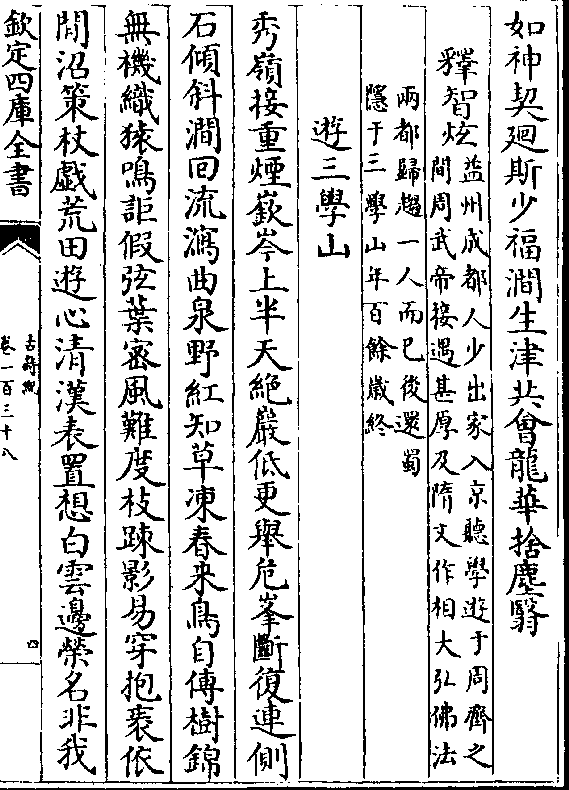 如神契廻斯少福澗生津共㑹龍華捨塵翳
釋智炫益州成都人少出家入京聽學遊于周齊之
間周武帝接遇甚厚及隋文作相大弘佛法
兩都歸趨一人而已後還蜀
隱于三學山年百餘歲終
遊三學山
秀嶺接重煙嶔岑上半天絶巖低更舉危峯斷復連側
石傾斜澗回流瀉曲泉野紅知草凍春来鳥自傳樹錦
無機織猿鳴詎假弦葉宻風難度枝踈影易穿抱裘依
閒沼策杖戯荒田遊心清漢表置想白雲邉榮名非我
欽定四庫全書
古詩紀
卷一百三十八
四